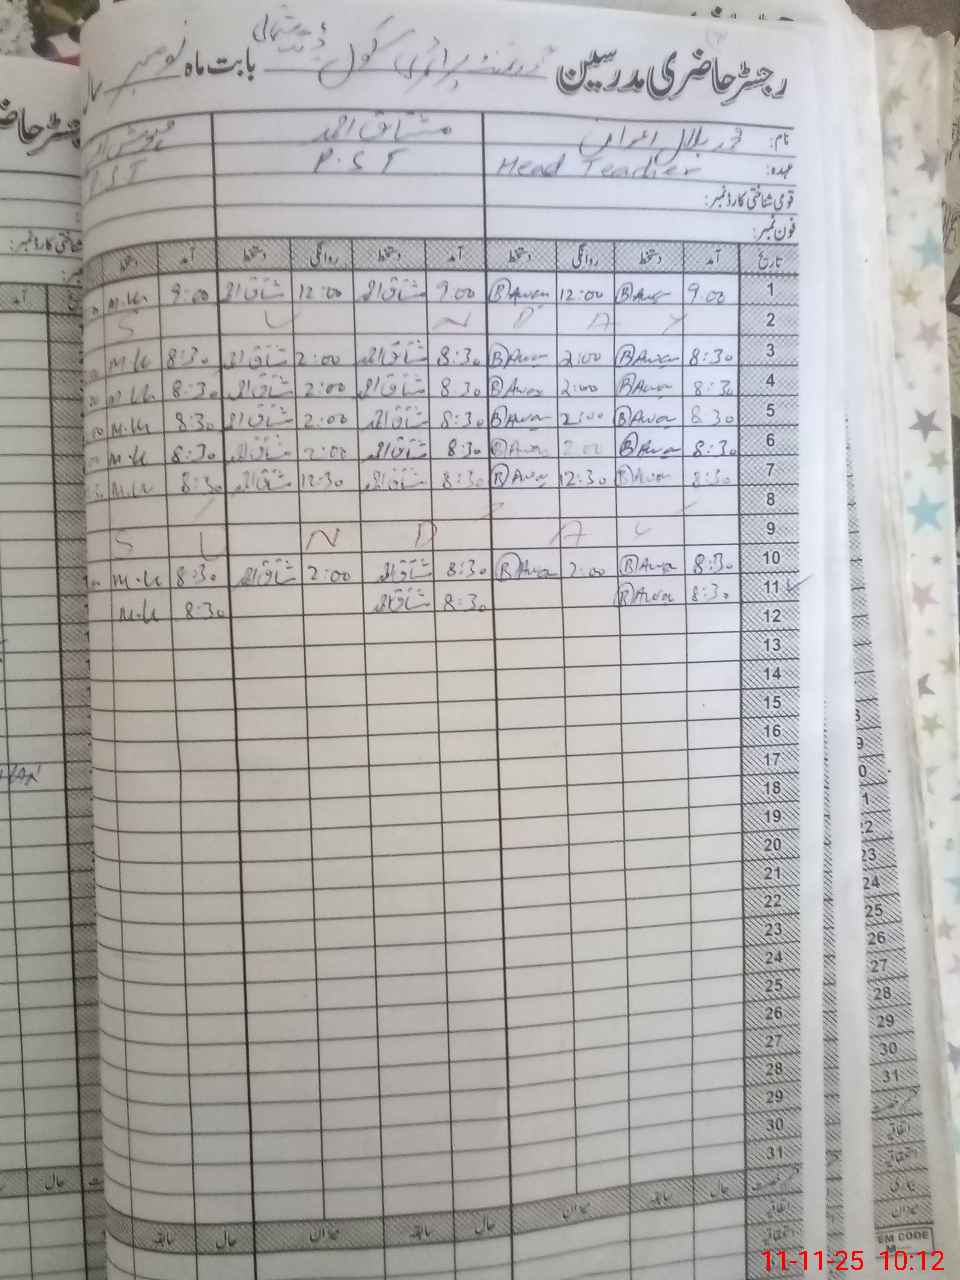 رجسٹر حاضری مدرسین گورنمنٹ پرائمری سکول بابت ماہ نومبر
نام: محمد بلال اعوان مشتاق احمد
عہدہ: Head Teacher P.S.T P.S.T
قومی شناختی کارڈ نمبر:
فون نمبر:
تاریخ آمد دستخط روانگی دستخط آمد دستخط روانگی دستخط آمد دستخط
1 9:00 (B) Awan 12:00 (B) Awan 9:00 مشتاق احمد 12:00 مشتاق احمد 9:00 M.K
2 S U N D A Y
3 8:30 (B) Awan 2:00 (B) Awan 8:30 مشتاق احمد 2:00 مشتاق احمد 8:30 M.K
4 8:30 (B) Awan 2:00 (B) Awan 8:30 مشتاق احمد 2:00 مشتاق احمد 8:30 M.K
5 8:30 (B) Awan 2:00 (B) Awan 8:30 مشتاق احمد 2:00 مشتاق احمد 8:30 M.K
6 8:30 (B) Awan 2:00 (B) Awan 8:30 مشتاق احمد 2:00 مشتاق احمد 8:30 M.K
7 8:30 (B) Awan 12:30 (B) Awan 8:30 مشتاق احمد 12:30 مشتاق احمد 8:30 M.K
8
9 S U N D A Y
10 8:30 (B) Awan 2:00 (B) Awan 8:30 مشتاق احمد 2:00 مشتاق احمد 8:30 M.K
11 8:30 (B) Awan 8:30 مشتاق احمد 8:30 M.K
12
13
14
15
16
17
18
19
20
21
22
23
24
25
26
27
28
29
30
31
حال سابقہ میزان حال سابقہ میزان حال سابقہ
EM CODE
11-11-25 10:12